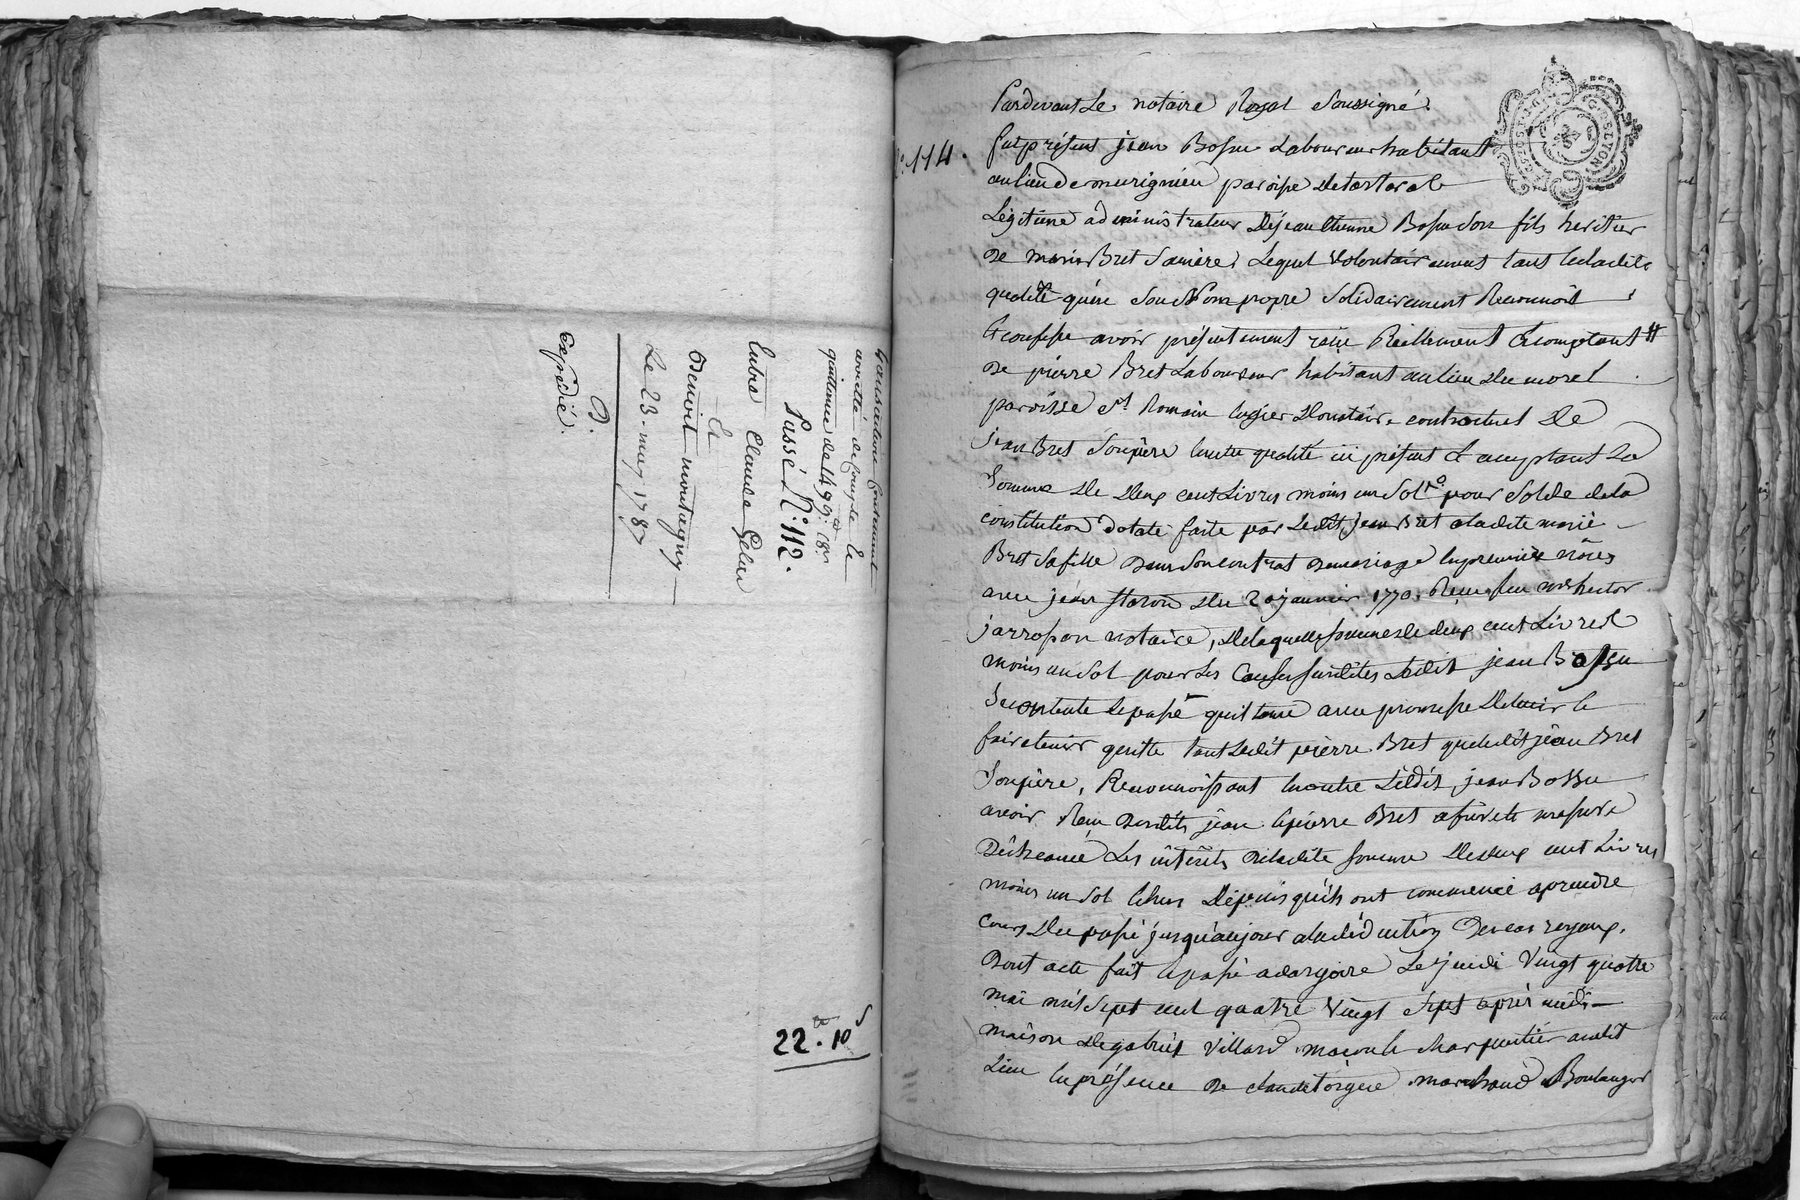 transaction contenant
arretté de compte et
quittance de 499# 18s
Passé N° 112.
Entre Claude Gelin
et
Benoit montagny
Le 23. may 1787
D.
Expédié.
22# 10s
N° 114.
Pardevant Le notaire Royal Soussigné
fut présent jean Bossu Laboureur habitant
au lieu de marignieu paroisse de
Légitime administrateur de jean Etienne Bossu Son fils heritier
de marie Bret Sa mère, Lequel volontairement tant en ladite
qualité qu'en Son Nom propre Solidairement Reconnoit
Et confesse avoir présentement reçu Réellement Et comptant
de pierre Bret Laboureur habitant au lieu du morel
paroisse St Romain donataire contractuel de
jean Bret Son père En cette qualité ici présent Et acceptant La
Somme de deux cent Livres moins un Sol pour Solde de la
constitution dotale faite par Ledit Jean Bret a ladite marie
Bret Sa fille dans Son contrat de mariage En premières nôces
avec jean du 20 janvier 1770. Reçu feu me hector
jarrosson notaire, de laquelle Somme de deux cent Livres
moins un Sol pour Les Causes Susdites Ledit jean Bossu
Se contente Le passe quittance avec promesse de tenir Et
faire tenir quitte tant Ledit pierre Bret que ledit jean Bret
Son père, Reconnoissant En outre Ledit jean Bossu
avoir Reçu desdits jean Et pierre Bret a fur Et mesure
d'échéance Les intérêts de ladite Somme de deux cent Livres
moins un Sol Echus depuis qu'ils ont commencé a prendre
cours du passé jusqu'aujour a la déduction des cas royaux.
Dont acte fait Et passé a dargoire Le jeudi Vingt quatre
mai mil Sept cent quatre Vingt Sept après midi
maison de gabriel Villard maçon Et charpentier audit
Lieu En présence de claude marchand Boulanger